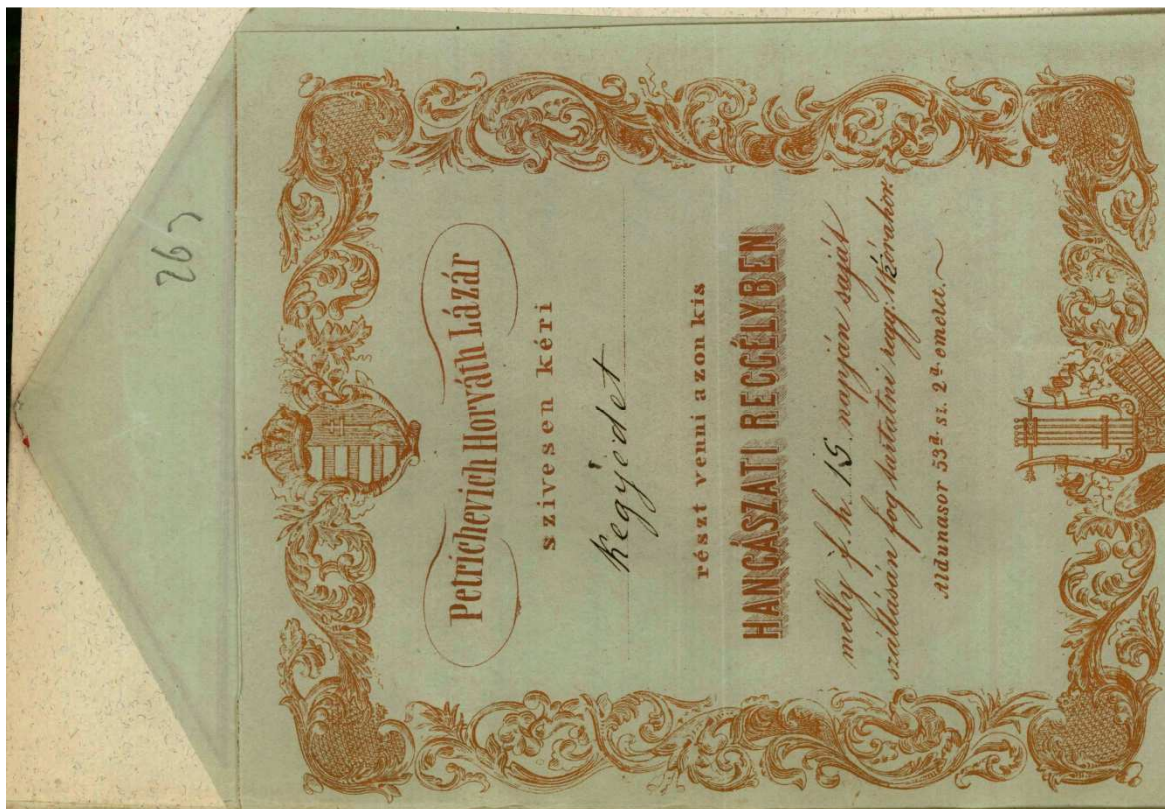 263
Petrichevich Horváth Lázár
szivesen kéri
Kegyédet
részt venni azon kis
HANGÁSZATI REGGÉLYBEN
melly f. h. 15. napján saját
szállásán fog tartatni regg. 12 órakor.
Aldunasor 53dik sz. 2d. emelet.